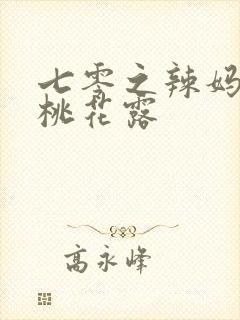 七零之辣妈
桃花露
高永峰